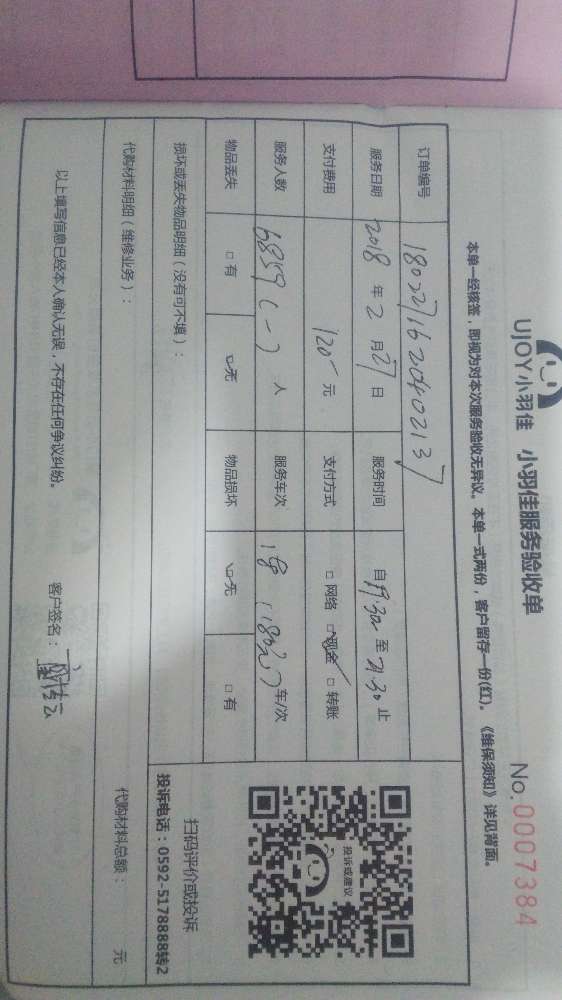 UJOY小羽佳 小羽佳服务验收单 No. 0007384
本单一经核签，即视为对本次服务验收无异议。本单一式两份，客户留存一份(红)。《维保须知》详见背面。
订单编号 180227162040213
服务日期 2018 年 2 月 27 日 服务时间 自 19:30 至 21:30 止
支付费用 120 元 支付方式 □ 网络 □ 现金 □ 转账
服务人数 6859 (一) 人 服务车次 车/次
物品丢失 □ 有 □ 无 物品损坏 □ 无 □ 有
损坏或丢失物品明细（没有可不填）：
代购材料明细（维修业务）： 代购材料总额： 元
以上填写信息已经本人确认无误，不存在任何争议纠纷。 客户签名：
投诉或建议
扫码评价或投诉
投诉电话：0592-5178888转2